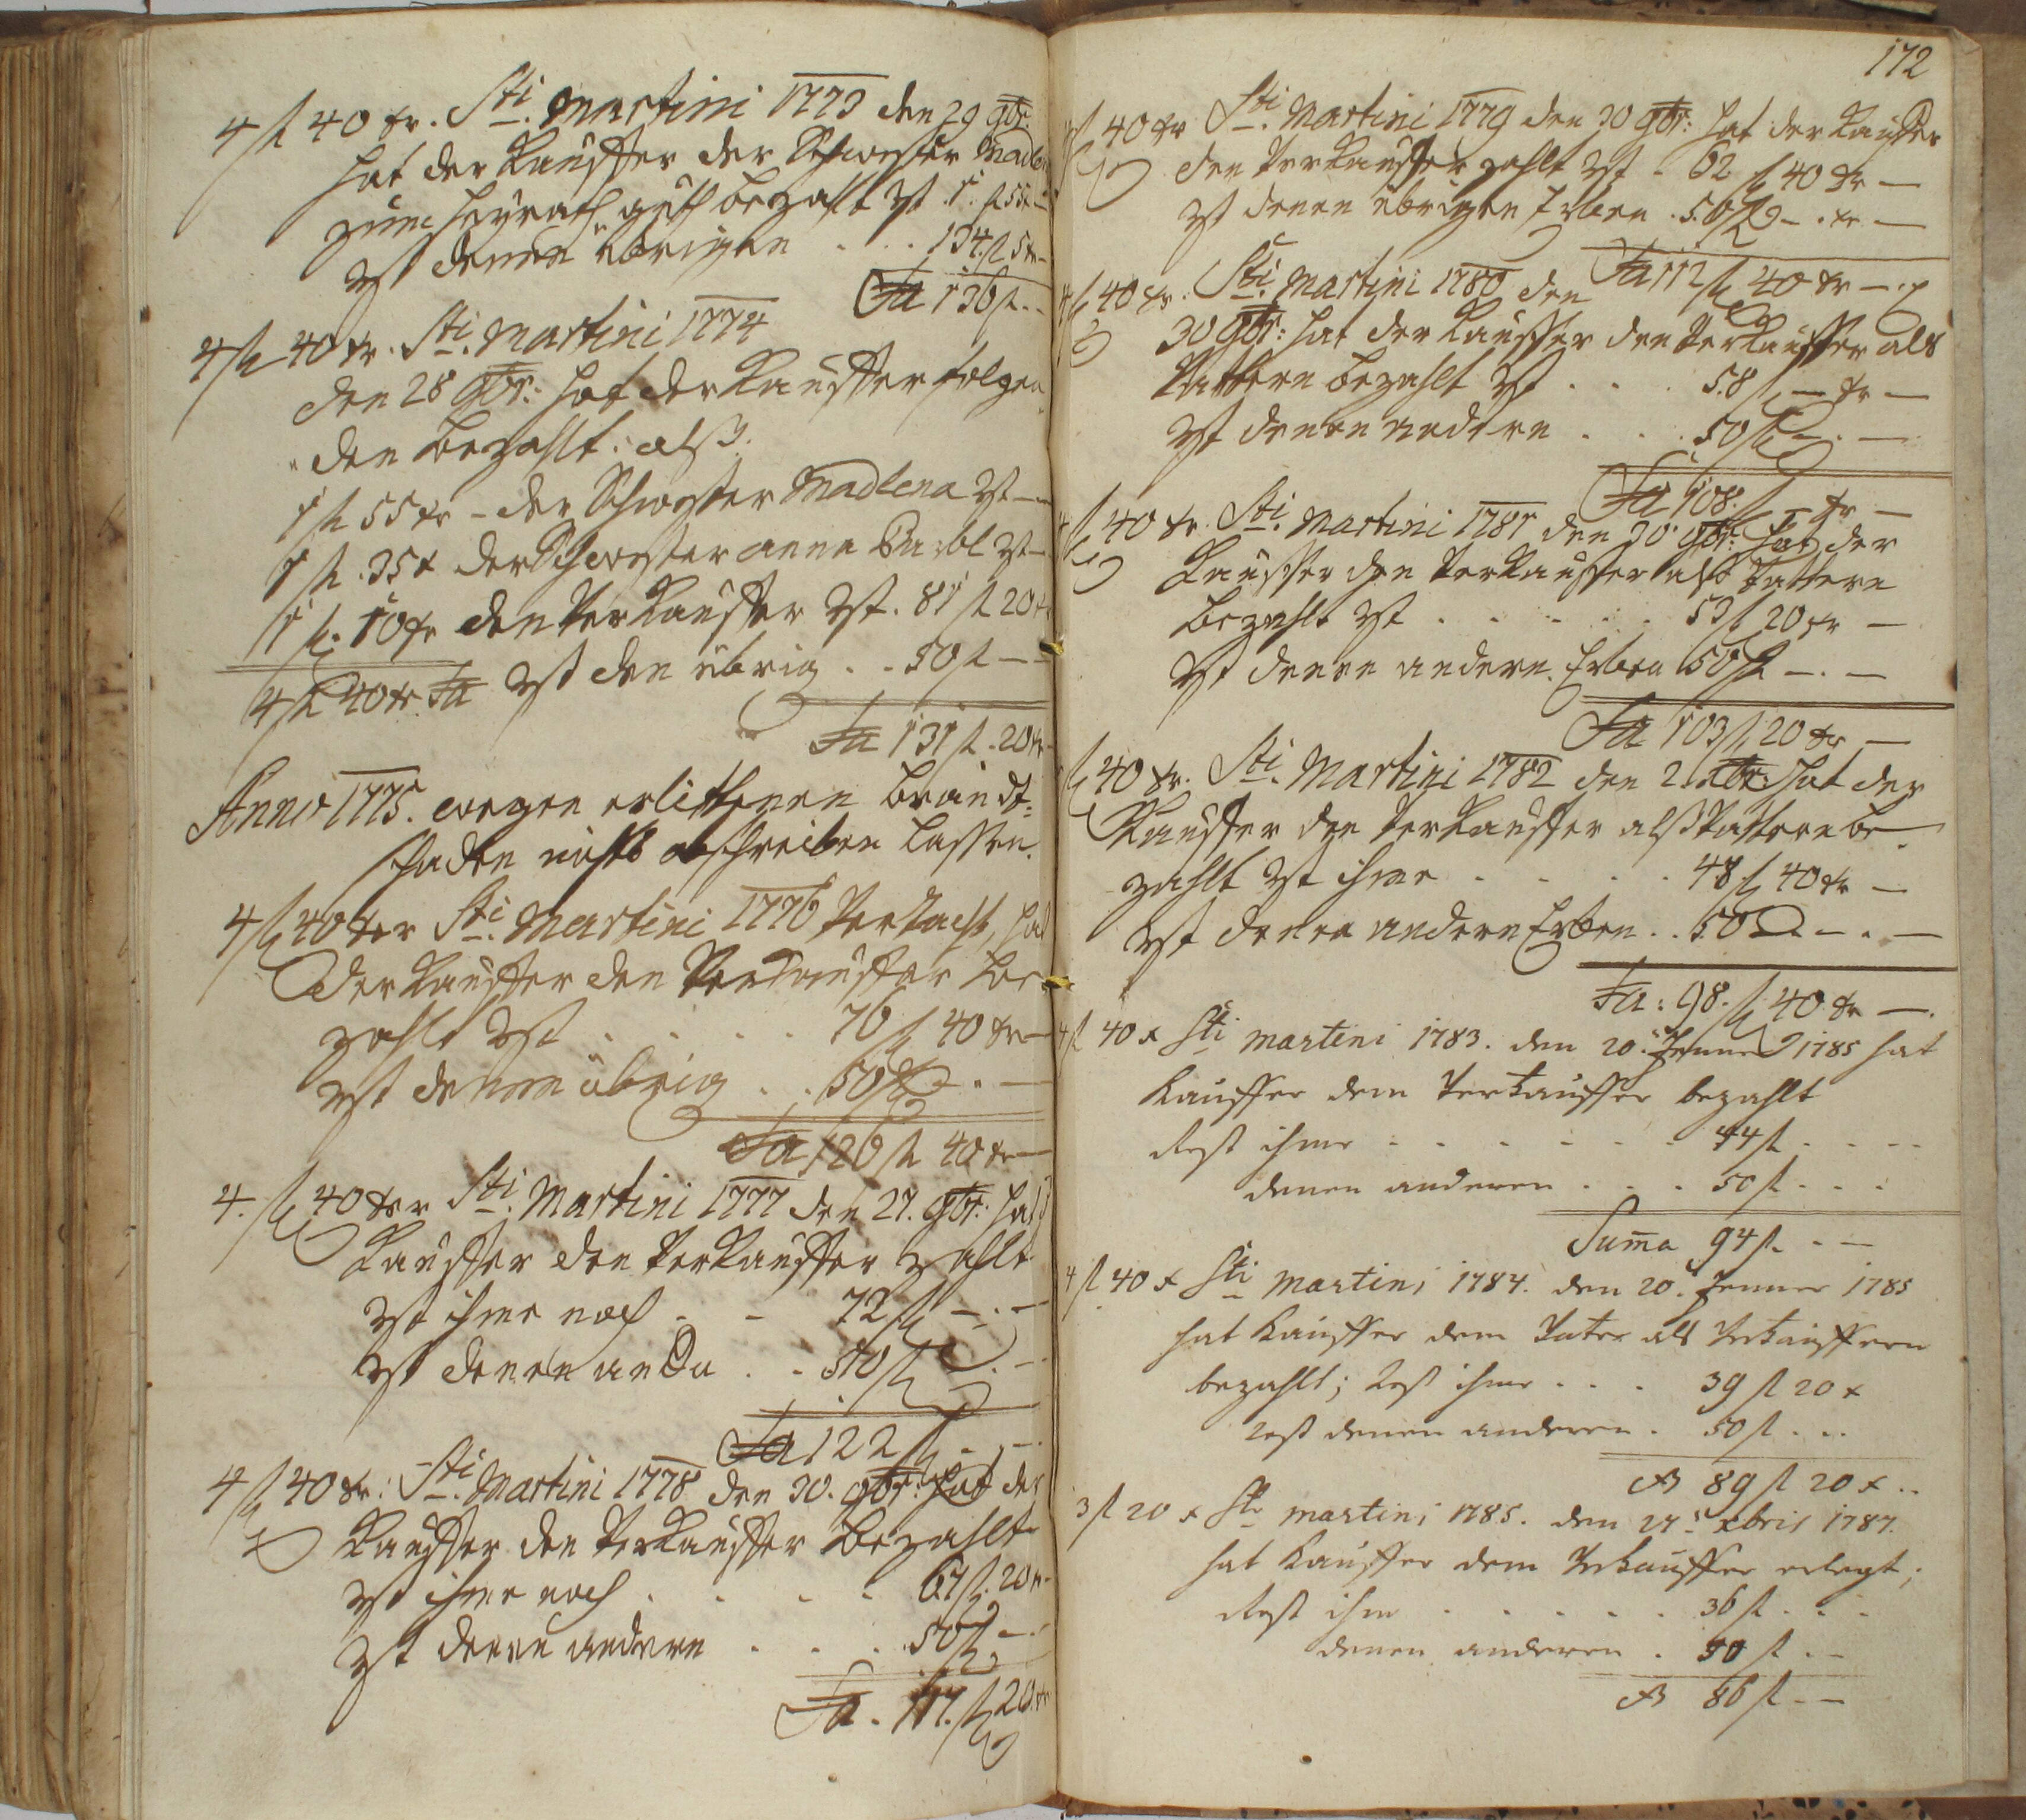 4 fl 40 kr. Sti. Martini 1773 den 29 9br:
hat der Kauffer der Schwester Madlen
zum Heyrath guth bezahlt rst 1. fl 55 kr
rst denen übrigen . . . 134. fl 5 kr
Sa 136 fl. -
4 fl 40 kr. Sti. Martini 1774
den 28 9br: hat der Kauffer folgen
den bezahlt: alß.
1 fl 55 kr - der Schwester Madlena rst -
1 fl. 35 x der Schwester anna rst -
1 fl. 10 kr den Verkauffer rst. 81 fl 20 kr
4 fl 40 kr. Sa rst den übrig . . 50 fl - -
Sa 131 fl. 20 kr
Anno 1775. wegen erlittenen brandt=
schaden nichts abschreiben lassen.
4 fl 40 kr Sti. Martini 1776 hat
der Kauffer den Verkauffer be
zahlt rst . . . . 76 fl 40 kr -
rst denen übrig . . 50 fl - . -
Sa 126 fl 40 kr -
4. fl 40 kr Sti. Martini 1777 den 27. 9br: hat
Kauffer den Verkauffer zahlt
rst ihme noch . - 72 fl - . -
rst denen . . 50 fl - . -
Sa 122 fl - . -
4 fl 40 kr: Sti. Martini 1778 den 30. 9br: hat der
Kauffer den Verkauffer bezahlt
rst ihme noch . . . . 67 fl. 20 kr
rst denen andern . . . 50 fl - .
Sa . 117. fl 20 kr
172
4 fl 40 kr Sti. Martini 1779 den 30 9br: hat der Kauffer
den Verkauffer zahlt rst - 62 fl 40 kr -
rst denen übrigen Erben . 50 fl - . kr -
Sa 112 fl 40 kr - .
4 fl 40 kr. Sti. Martini 1780 den
30 9br: hat der Kauffer den Verkauffer als
Vattern bezahlt rst . . . 58 fl - kr -
rst denen andern . . . 50 fl - . -
Sa 108. fl - kr -
4 fl 40 kr. Sti. Martini 1781 den 30 9br: hat der
Kauffer den Verkauffer als Vattern
bezahlt rst . . . . . 53 fl 20 kr -
rst denen andern. Erben 50 fl - . -
Sa 103 fl 20 kr -
4 fl 40 kr. Sti. Martini 1782 den 2 xbr: hat der
Kauffer den Verkauffer alß Vattern be
zahlt rst ihme . . . . 48 fl 40 kr -
rst denen andern Erben . . 50 fl - . -
Sa: 98. fl 40 kr - .
4 fl 40 x Sti Martini 1783. den 20. Jenner 1785 hat
Kauffer dem Verkauffer bezahlt
Rest ihme - - - - - - 44 fl . - - -
denen anderen . . . 50 fl . . .
Suma 94 fl. - -
4 fl 40 x Sti Martini 1784. den 20. Jenner 1785
hat Kauffer dem Vater als Verkauffern
bezahlt; Rest ihme . . . 39 fl 20 x
Rest denen anderen . 50 fl . . .
89 fl 20 x . .
3 fl 20 x Sti Martini 1785. den 27. xbris 1787.
hat Kauffer dem Verkauffer erlegt;
Rest ihm . . . . . 36 fl . . .
denen anderen . 50 fl . -
86 fl - -